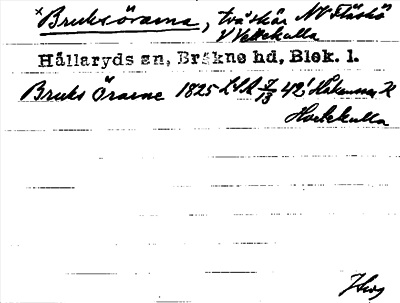 ×Bruksörarna, två skär NV Flaskö
V Vettekulla
Hällaryds sn, Bräkne hd, Blek. l.
Bruks Örarne 1825 LSA 7/13 42; Håkansson K
Horsekulla